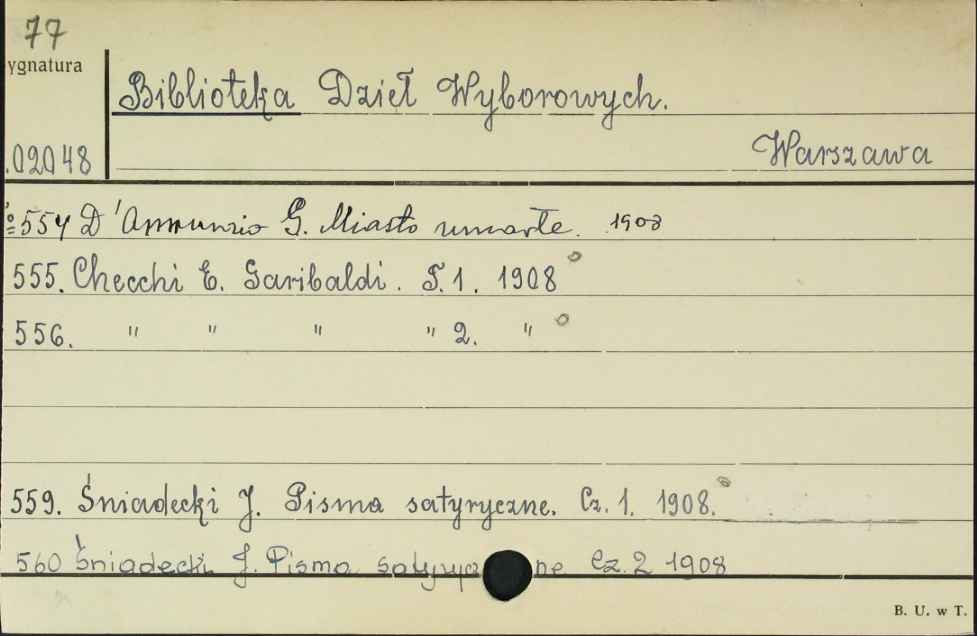 77
ygnatura
Biblioteka Dzieł Wyborowych.
.02048
Warszawa
№ 554 D'Annunzio G. Miasto umarłe. 1908
555. Checchi E. Garibaldi. T. 1. 1908
556. " " " " 2. "
559. Śniadecki J. Pisma satyryczne. Cz. 1. 1908.
560 Śniadecki J. Pisma satyrycz ne Cz. 2 1908
B. U. w T.